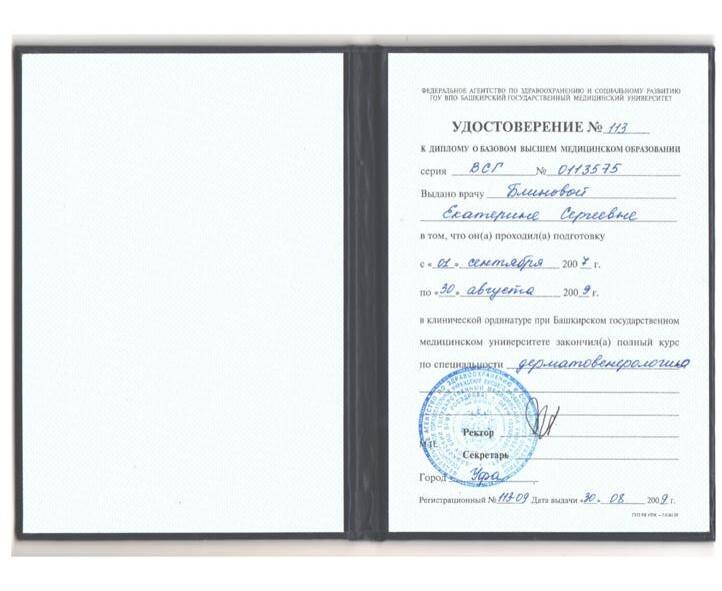 ФЕДЕРАЛЬНОЕ АГЕНТСТВО ПО ЗДРАВООХРАНЕНИЮ И СОЦИАЛЬНОМУ РАЗВИТИЮ
ГОУ ВПО БАШКИРСКИЙ ГОСУДАРСТВЕННЫЙ МЕДИЦИНСКИЙ УНИВЕРСИТЕТ
УДОСТОВЕРЕНИЕ № 113
К ДИПЛОМУ О БАЗОВОМ ВЫСШЕМ МЕДИЦИНСКОМ ОБРАЗОВАНИИ
серия ВСГ № 0113575
Выдано врачу Блиновой
Екатерине Сергеевне
в том, что он(а) проходил(а) подготовку
с «01» сентября 2007 г.
по «30» августа 2009 г.
в клинической ординатуре при Башкирском государственном
медицинском университете закончил(а) полный курс
по специальности дерматовенерология
Ректор
М.П.
Секретарь
Город Уфа
Регистрационный № 113-09 Дата выдачи «30» 08 2009 г.